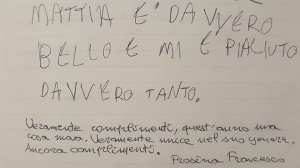 MATTIA E' DAVVERO
BELLO E MI È PIACIUTO
DAVVERO TANTO.
Veramente complimenti, quest'anno una
cosa nuova. Veramente unica nel suo genere.
Ancora complimenti.
Francesco